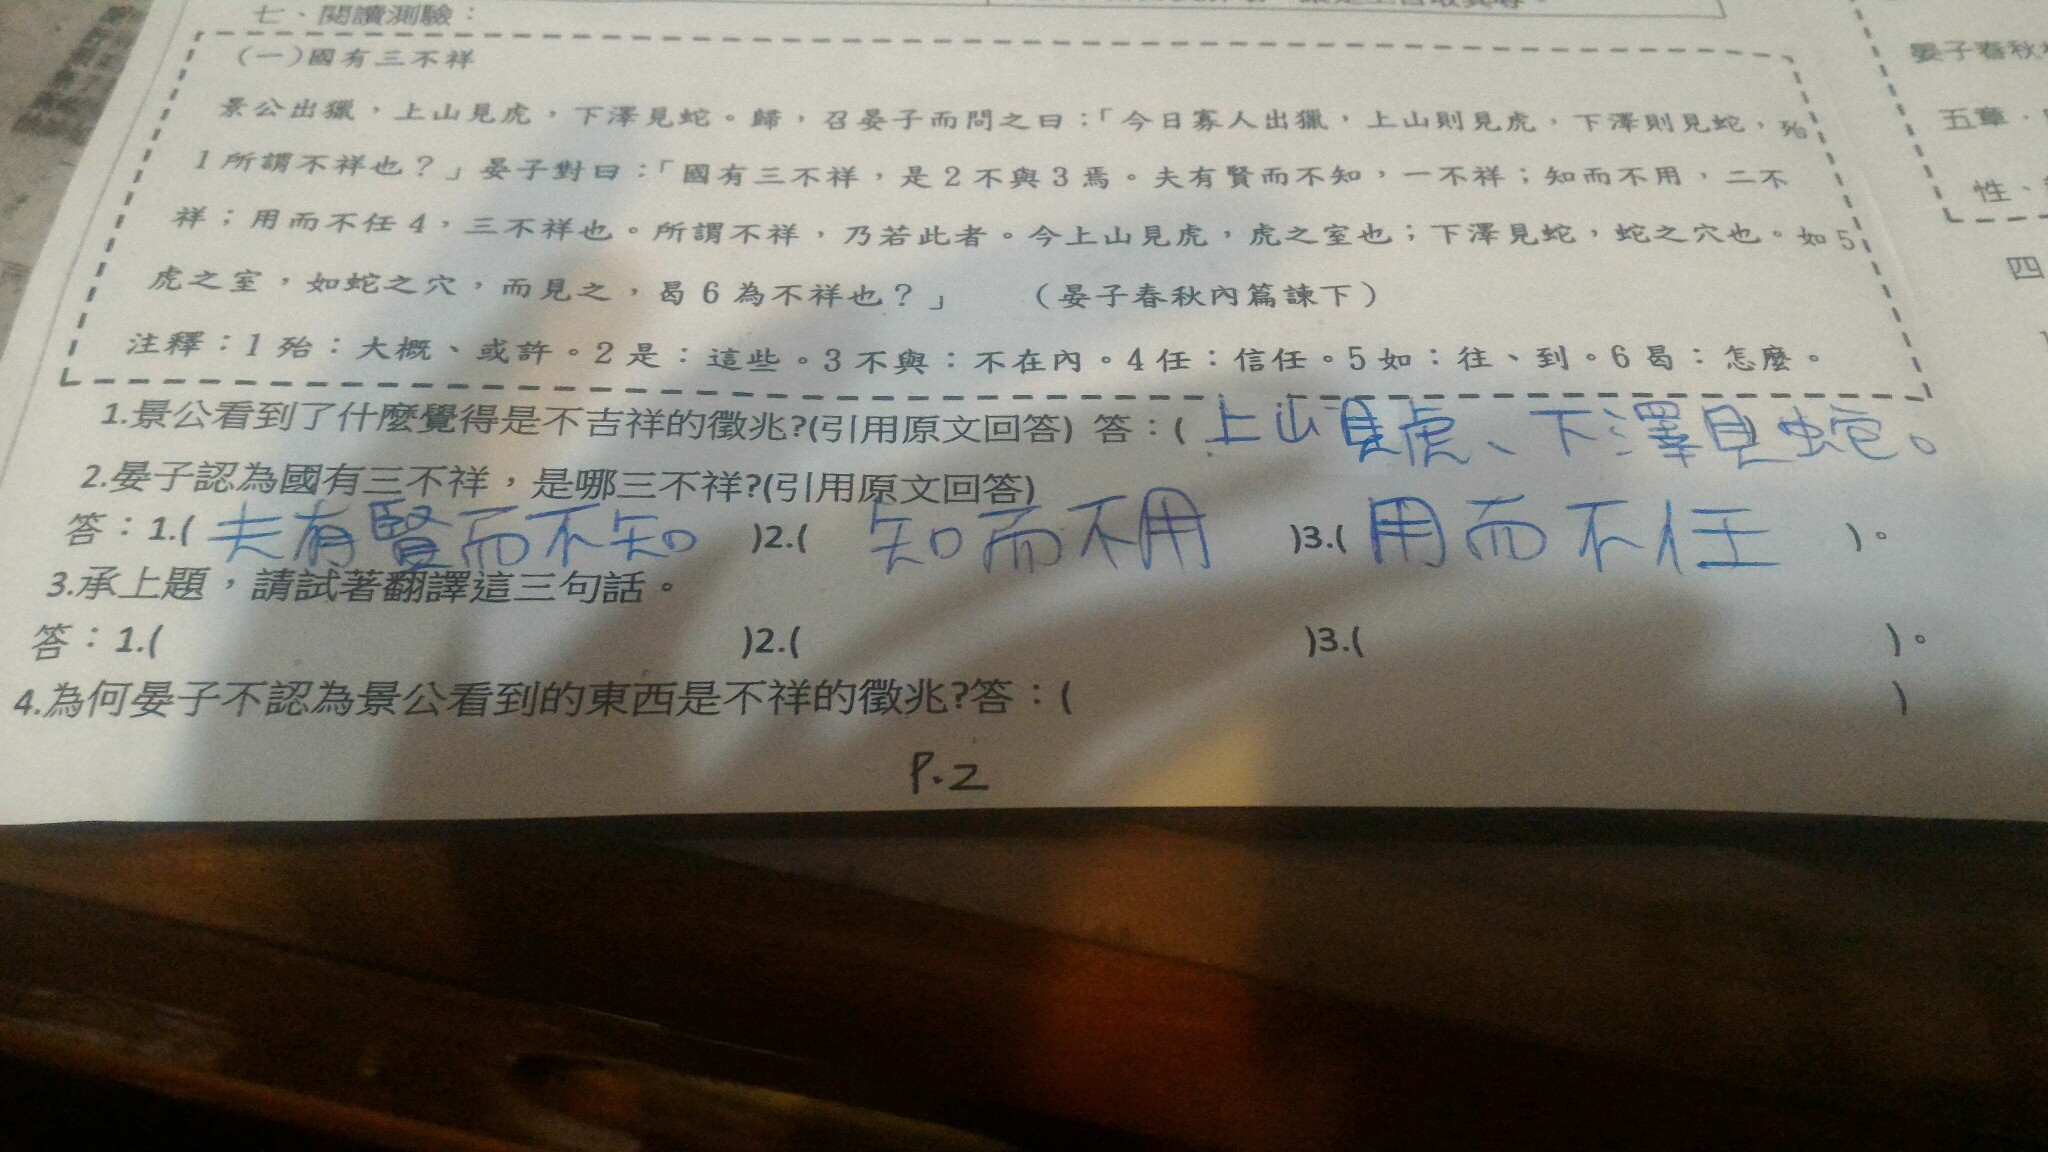 七、閱讀測驗：
(一)國有三不祥
景公出獵，上山見虎，下澤見蛇。歸，召晏子而問之曰：「今日寡人出獵，上山則見虎，下澤則見蛇，殆
1所謂不祥也？」晏子對曰：「國有三不祥，是2不與3焉。夫有賢而不知，一不祥；知而不用，二不
祥；用而不任4，三不祥也。所謂不祥，乃若此者。今上山見虎，虎之室也；下澤見蛇，蛇之穴也。如5
虎之室，如蛇之穴，而見之，曷6為不祥也？」 （晏子春秋內篇諫下）
注釋：1殆：大概、或許。2是：這些。3不與：不在內。4任：信任。5如：往、到。6曷：怎麼。
1.景公看到了什麼覺得是不吉祥的徵兆?(引用原文回答) 答：( 上山見虎、下澤見蛇。
2.晏子認為國有三不祥，是哪三不祥?(引用原文回答)
答：1.( 夫有賢而不知 )2.( 知而不用 )3.( 用而不任 )。
3.承上題，請試著翻譯這三句話。
答：1.( )2.( )3.( )。
4.為何晏子不認為景公看到的東西是不祥的徵兆?答：( )
P.2
晏子春秋
五章、
性、
四